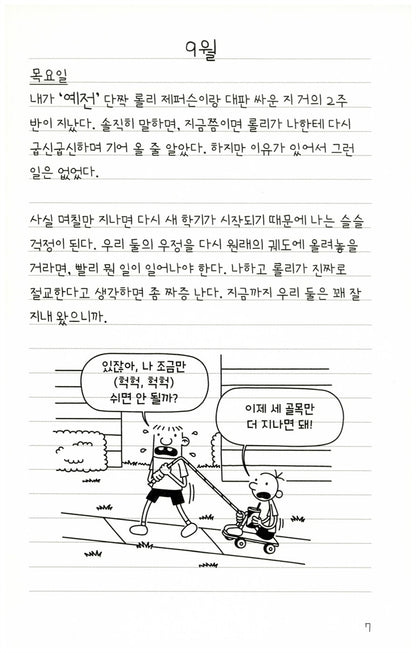 9월
목요일
내가 '예전' 단짝 롤리 제퍼슨이랑 대판 싸운 지 거의 2주
반이 지났다. 솔직히 말하면, 지금쯤이면 롤리가 나한테 다시
굽신굽신하며 기어 올 줄 알았다. 하지만 이유가 있어서 그런
일은 없었다.
사실 며칠만 지나면 다시 새 학기가 시작되기 때문에 나는 슬슬
걱정이 된다. 우리 둘의 우정을 다시 원래의 궤도에 올려놓을
거라면, 빨리 뭔 일이 일어나야 한다. 나하고 롤리가 진짜로
절교한다고 생각하면 좀 짜증 난다. 지금까지 우리 둘은 꽤 잘
지내 왔으니까.
있잖아, 나 조금만
(헉헉, 헉헉)
쉬면 안 될까?
이제 세 골목만
더 지나면 돼!
7